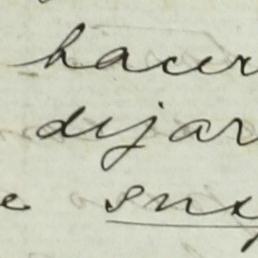 hacer
dijar
e sus